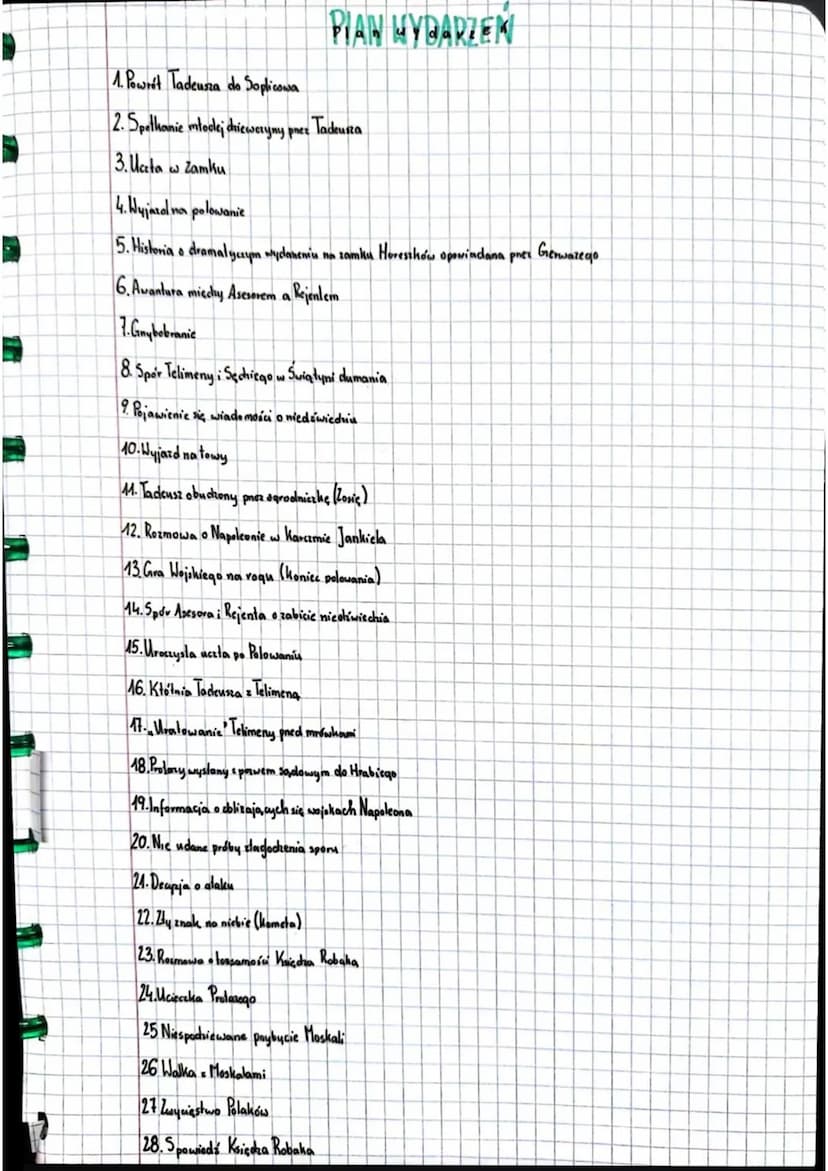 PlAN WYDARZEŃ
Plan wydarzeń
1. Powrót Tadeusza do Soplicowa
2. Spotkanie młodej dziewczyny przez Tadeusza
3. Uczta w zamku
4. Wyjazd na polowanie
5. Historia o dramatycznym wydarzeniu na zamku Horeszków opowiadana przez Gerwazego
6. Awantura między Asesorem a Rejentem
7. Grzybobranie
8. Spór Telimeny i Sędziego w Świątyni dumania
9. Pojawienie się wiadomości o niedźwiedziu
10. Wyjazd na łowy
11. Tadeusz obudzony przez ogrodniczkę (Zosię)
12. Rozmowa o Napoleonie w Karczmie Jankiela
13. Gra Wojskiego na rogu (Koniec polowania)
14. Spór Asesora i Rejenta o zabicie niedźwiedzia
15. Uroczysta uczta po Polowaniu
16. Kłótnia Tadeusza z Telimeną
17. „Uratowanie" Telimeny przed mrówkami
18. Protazy wysłany z pozwem sądowym do Hrabiego
19. Informacja o zbliżających się wojskach Napoleona
20. Nie udane próby złagodzenia sporu
21. Decyzja o ataku
22. Zły znak na niebie (kometa)
23. Rozmowa o tożsamości Księdza Robaka
24. Ucieczka Protazego
25 Niespodziewane przybycie Moskali
26 Walka z Moskalami
27 Zwycięstwo Polaków
28. Spowiedź Księdza Robaka